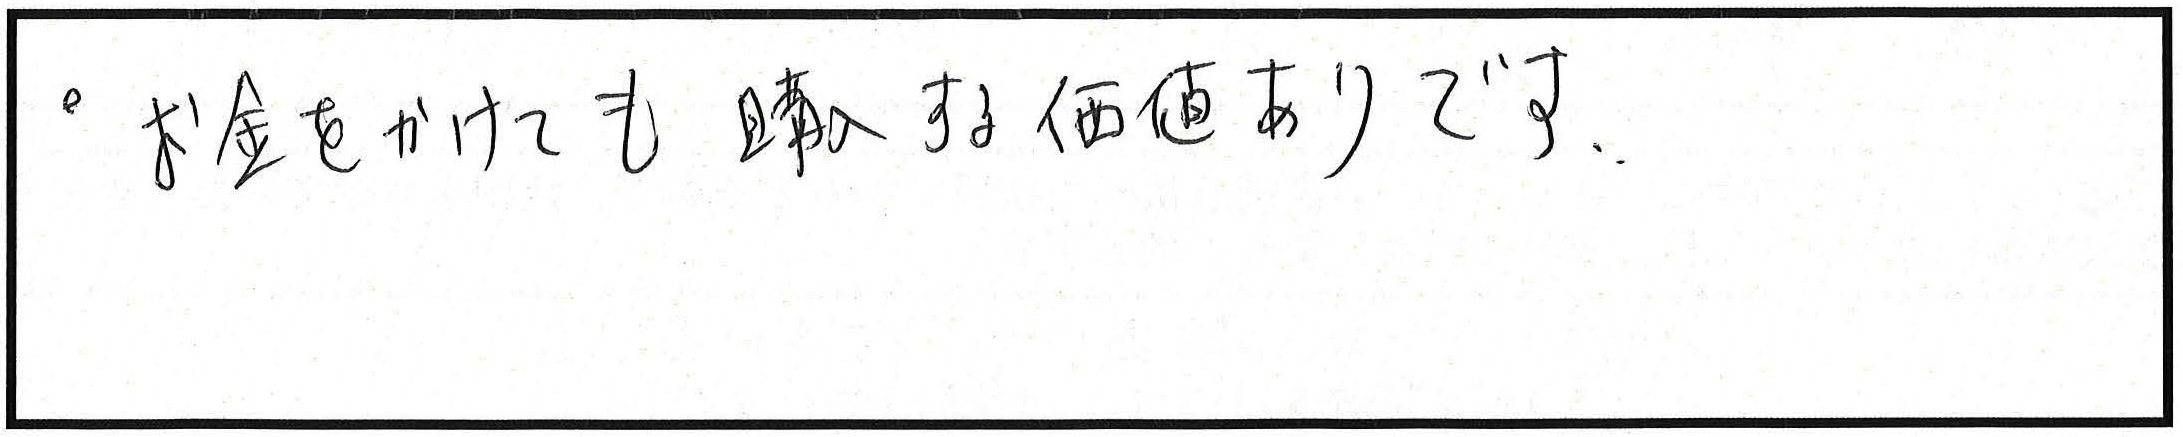 ・お金をかけても購入する価値ありです..